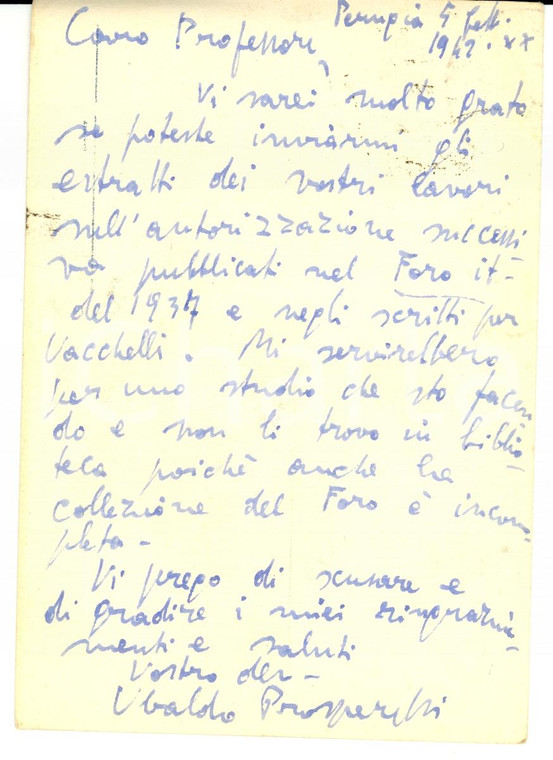 Perugia 5 sett.
1942. XX
Caro Professore,
Vi sarei molto grato
se poteste inviarmi gli
estratti dei vostri lavori
sull'autorizzazione successi
va pubblicati nel Foro it-
del 1937 e negli scritti per
Vacchelli. Mi servirebbero
per uno studio che sto facen
do e non li trovo in biblio-
teca poichè anche la
collezione del Foro è incom-
pleta -
Vi prego di scusare e
di gradire i miei ringrazia-
menti e saluti
Vostro dev-
Ubaldo Prosperetti